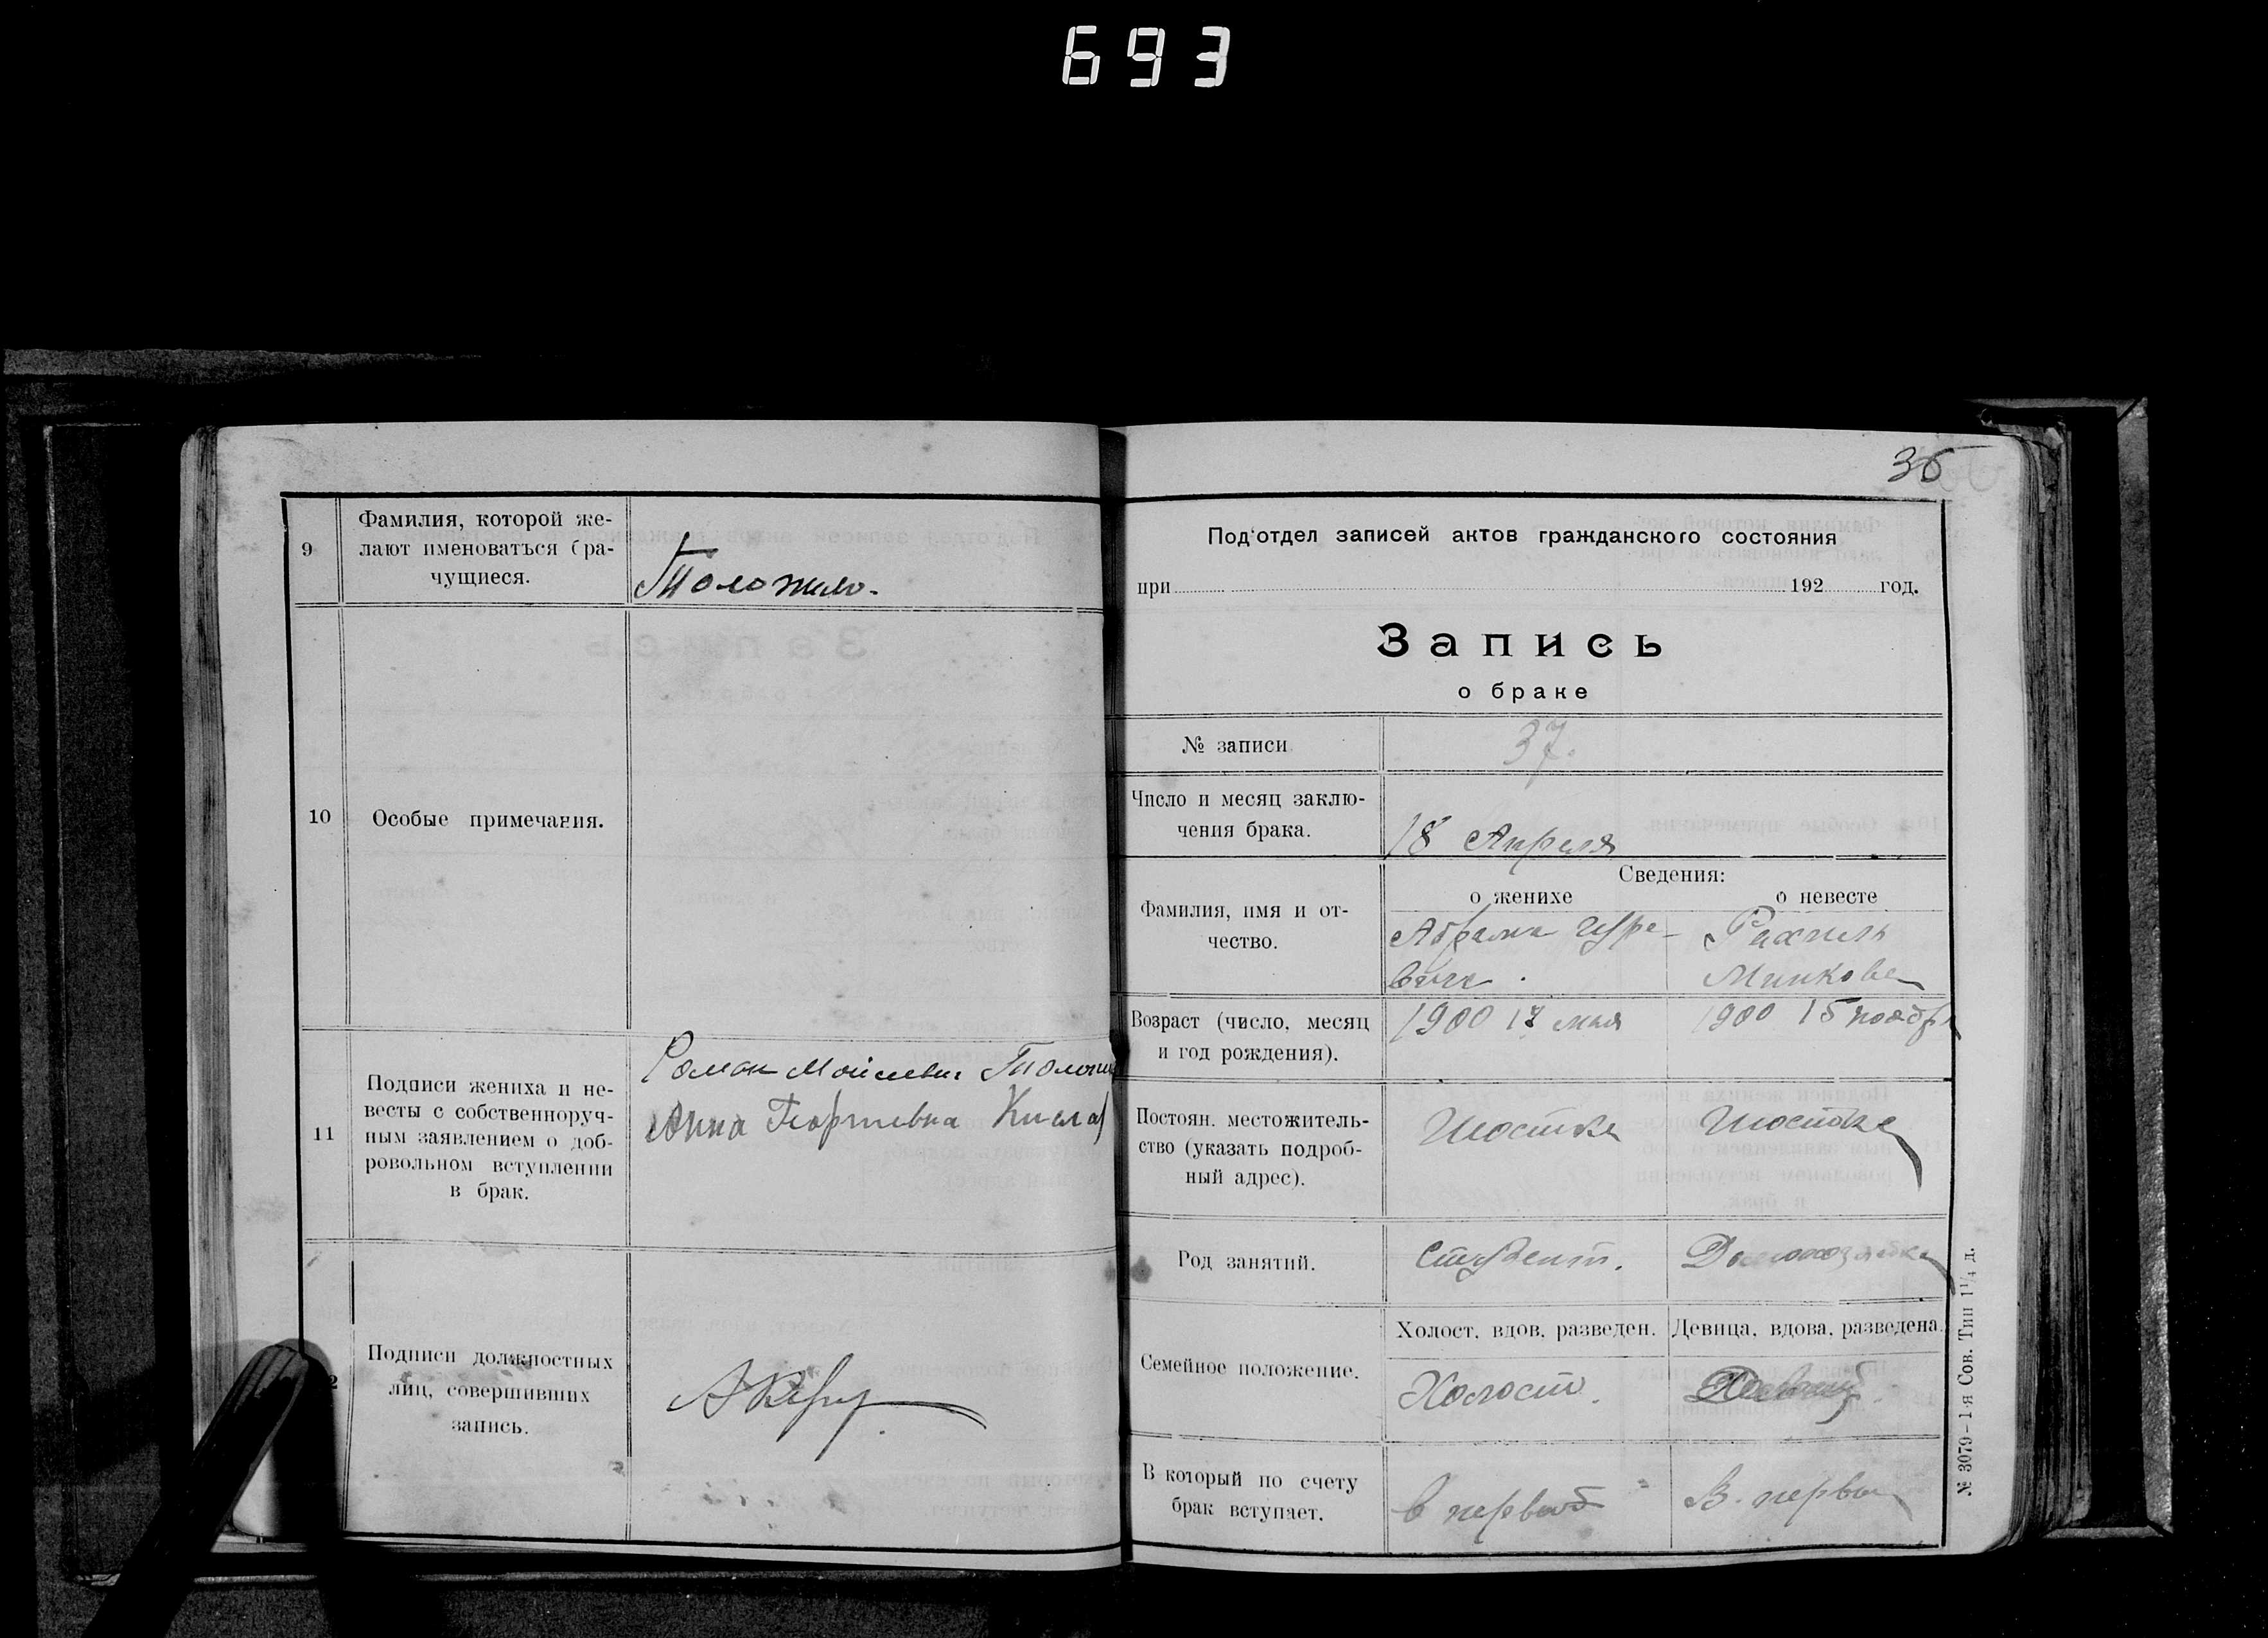 693
9
Фамилия, которой же-
лают именоваться бра-
чущиеся.
10
Особые примечания.
11
Подписи жениха и не-
весты с собственноруч-
ным заявлением о доб-
ровольном вступлении
в брак.
Роман Мойсеевич
Анна Георгиевна
2
Подписи должностных
лиц, совершивших
запись.
36
Под'отдел записей актов гражданского состояния
при 192 год.
Запись
о браке
№ записи
37.
Число и месяц заклю-
чения брака.
18 Апреля
Сведения:
Фамилия, имя и от-
чество.
о женихе
о невесте
Абрама Гуре-
вича.
Рахиль
Минкова
Возраст (число, месяц
и год рождения).
1900 17 мая
1900 15 ноября
Постоян. местожитель-
ство (указать подроб-
ный адрес).
Шостка
Шостка
Род занятий.
Студент.
Домохозяйка
Семейное положение.
Холост. вдов. разведен.
Девица, вдова, разведена.
Холост.
В который по счету
брак вступает.
в первый
В. первы
№ 3079–1-я Сов. Тип 1¹/₄ д.